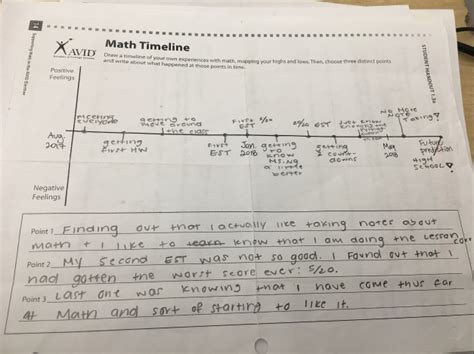 AVID
Math Timeline
Draw a timeline of your own experiences with math, mapping your highs and lows. Then, choose three distinct points
and write about what happened at those points in time.
STUDENT HANDOUT
Positive
Feelings
meeting
everyone
Getting to
move around
the class
First
EST
20/20 EST
Just know
No More
Note
Taking?
Aug.
2017
getting
First HW
First
EST
Jan.
2018
getting
to
know
MS. NG
a little
better
getting
count-
downs
May
2018
Future
prediction
HIGH
SCHOOL!
Negative
Feelings
Point 1 Finding out that I actually like taking notes about
math + I like to know that I am doing the lesson corr
Point 2 My second EST was not so good. I found out that I
had gotten the worst score ever: 5/20.
Point 3 Last one was knowing that I have come thus far
at Math and sort of starting to like it.